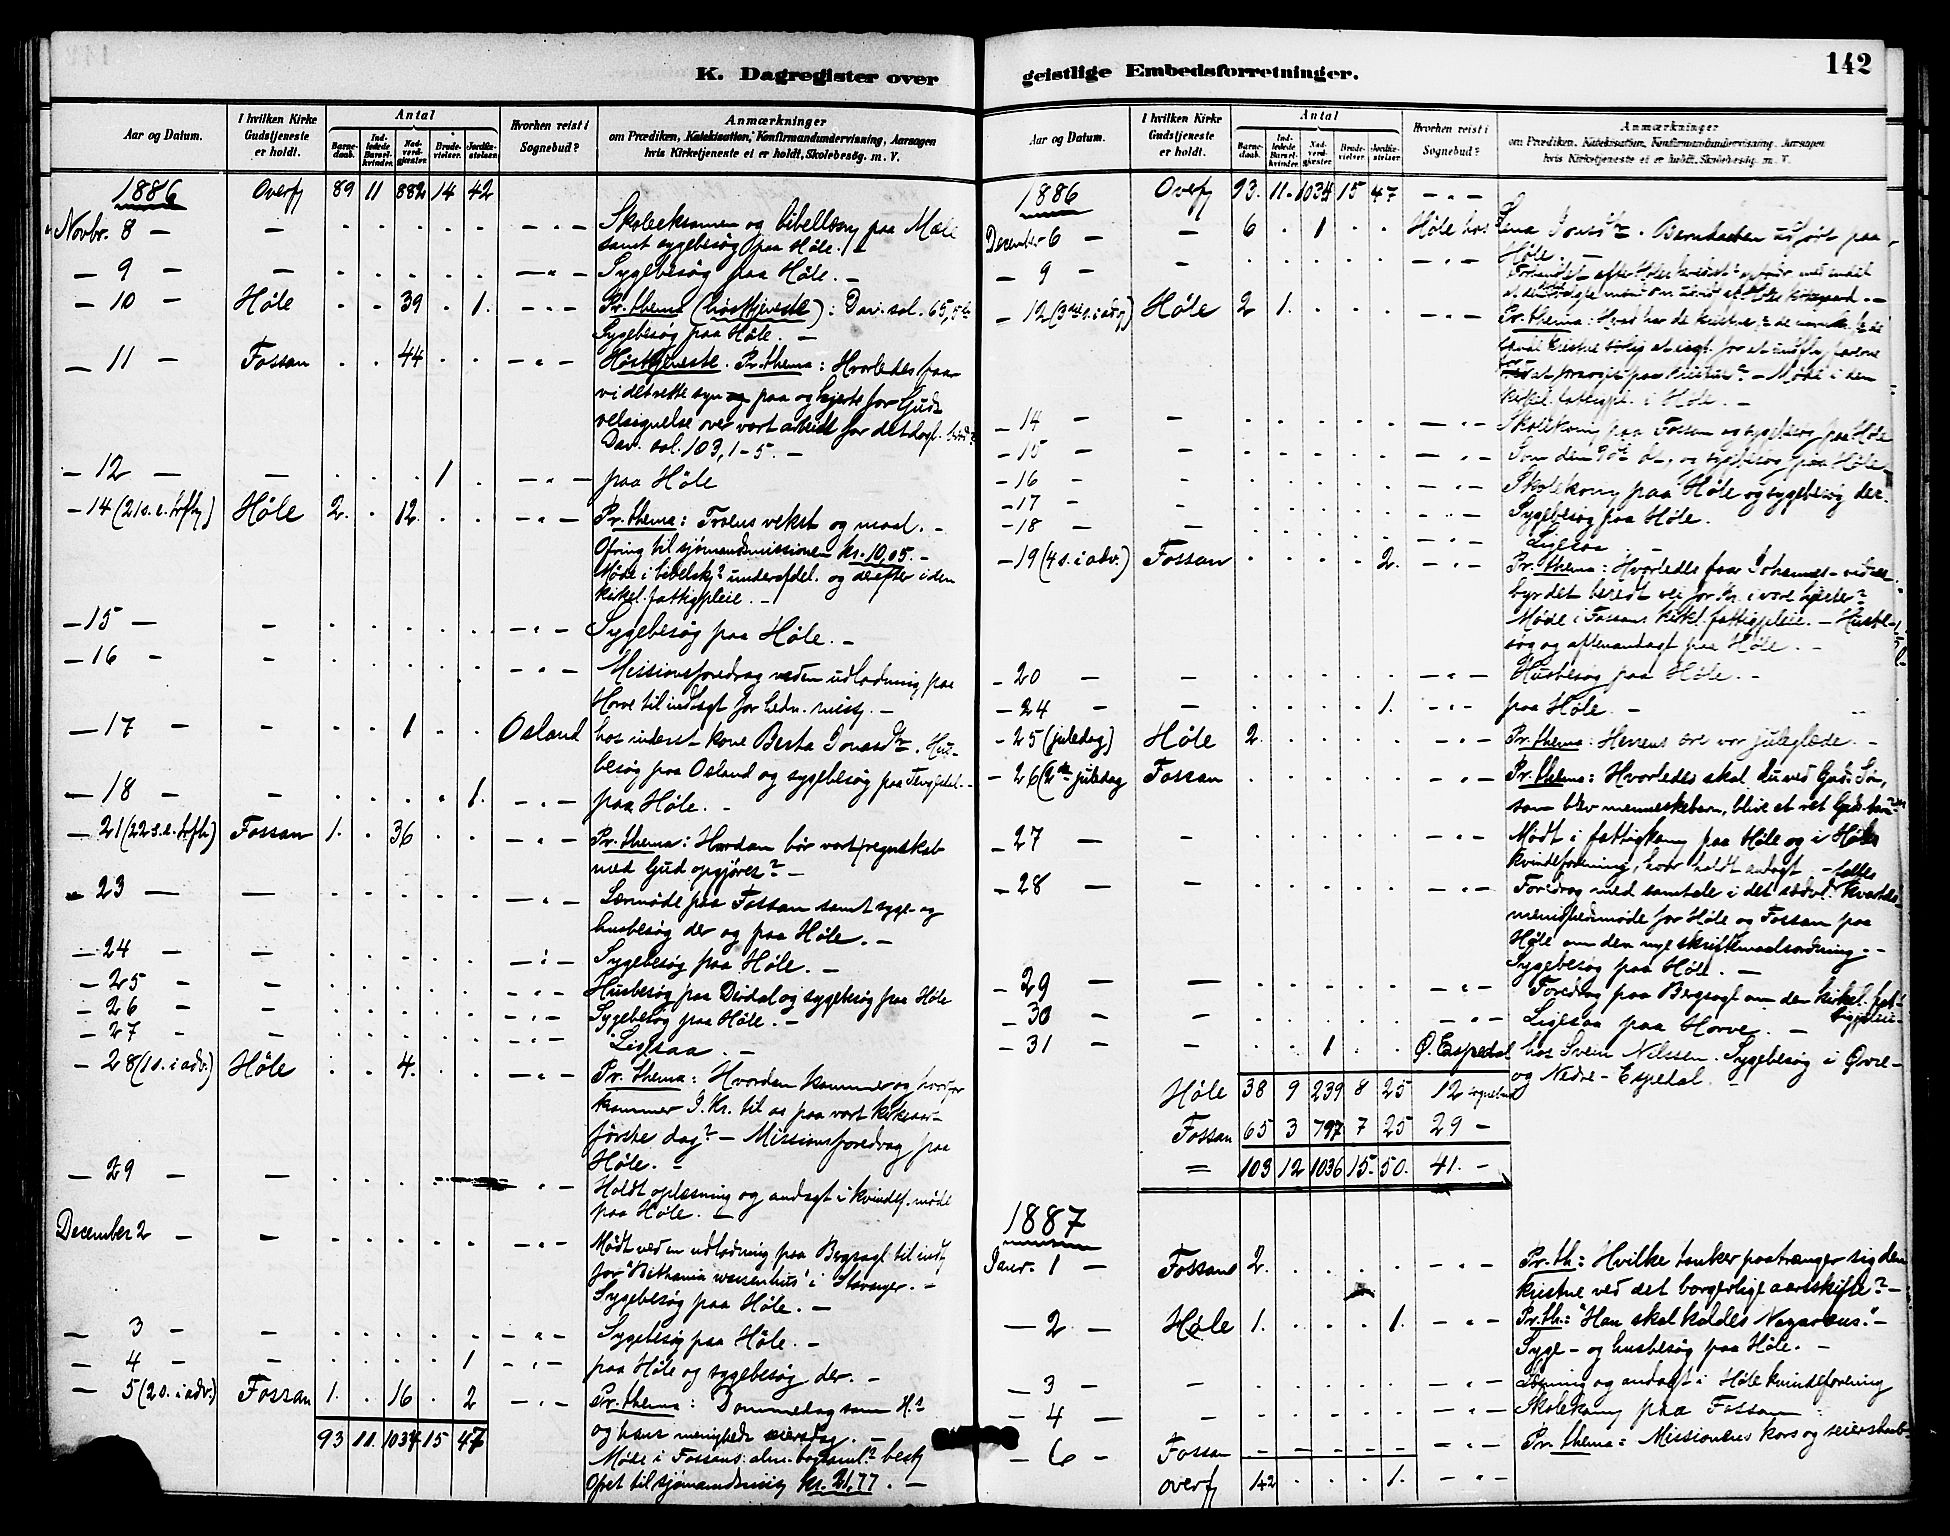 K. Dagregister over
Aar og Datum. I hvilken Kirke Gudstjeneste er holdt. Antal Barnedaab. Indledede Barselkvinder. Nadverdgjester. Brudevielser. Jordfæstelser. Hvorhen reist i Sognebud? Anmærkninger om Prædiken, Katekisation, Konfirmandundervisning, Aarsagen hvis Kirketjeneste ei er holdt, Skolebesøg. m. V.
1886 Overf 89 11 882 14 42
Novbr. 8 — — . . . . . — " — Skoleeksamen og bibellæsn paa Mæle
samt sygebesøg paa Høle. —
— 9 — — . . . . . — " — Sygebesøg paa Høle. —
— 10 — Høle . . 39 . 1. — " — Pr. thema (høsttjeneste): Dav. sal. 65,
Sygebesøg paa Høle. —
— 11 — Fossan . . 44 . . — " — Høsttjeneste. Pr. thema: Hvorledes faar
vi det rette syn paa og hjerte for Guds
velsignelse over vort arbeide for det dagl. brød?
Dav. sal. 103, 1-5. —
— 12 — . . . 1 . — " — paa Høle
— 14 (21 s. e. trefh) Høle 2. . 12. . . — " — Pr. thema: Troens vekst og maal. —
Ofring til sjømandsmissionen kr. 10,05. —
Møde i bibelsk? underafdel. og derefter i den
kirkel. fattigpleie. —
— 15 — — . . . . . — " — Sygebesøg paa Høle. —
— 16 — — . . . . . — " — Missionsforedrag ved en udlodning paa
Horve til indtægt for hedn. miss. —
— 17 — — . . 1 . . Osland hos inderst-kone Berta Jonasdtr. Hus-
besøg paa Osland og sygebesøg paa
— 18 — — . . . . 1. — " — paa Høle. —
— 21 (22 s. e. trefh) Fossan 1. . 36 . . — " — Pr. thema: Hvordan bør vort regnskab
med Gud opgjøres? —
— 23 — — . . . . . — " — Læremøde paa Fossan samt syge- og
husbesøg der og paa Høle. —
— 24 — — . . . . . — " — Sygebesøg paa Høle. —
— 25 — . . . . . — " — Husbesøg paa Dirdal og sygebesøg paa Høle
— 26 — . . . . . — " — Sygebesøg paa Høle. —
— 27 — . . . . . — " — Ligesaa. —
— 28 (1 s. i adv.) Høle . . 4. . . — " — Pr. thema: Hvordan kommer og hvorfor
kommer J. Kr. til os paa vort kirkeaars
første dag? — Missionsforedrag paa
Høle. —
— 29 — — . . . . . — " — Holdt oplæsning og andagt i kvindef. møde
paa Høle. —
December 2 — — . . . . . — " — Mødt ved en udlodning paa Bergsagl til indt.
for "Bethania waisenhus" i Stavanger. —
Sygebesøg paa Høle. —
— 3 — — . . . . . — " — Sygebesøg paa Høle. —
— 4 — — . . . . 1 — " — paa Høle og sygebesøg der. —
— 5 (2 s. i adv.) Fossan 1. . 16 . 2 — " — Pr. thema: Dommedag som
og hans menigheds seiersdag. —
93 11. 1034 15 47
Møde i Fossans alm. besty
Ofret til sjømandsmiss kr. 21,77. —
geistlige Embedsforretninger. 142
Aar og Datum. I hvilken Kirke Gudstjeneste er holdt. Antal Barnedaab. Indledede Barselkvinder. Nadverdgjester. Brudevielser. Jordfæstelser. Hvorhen reist i Sognebud? Anmærkninger om Prædiken, Katekisation, Konfirmandundervisning, Aarsagen hvis Kirketjeneste ei er holdt, Skolebesøg m. V.
1886 Overf 93. 11. 1034 15 47 — " —
December 6 — — 6 . 1 . . Høle hos Lena Jonsdtr. Barnedaaben udført paa
Høle. —
— 9 — — . . . . . — " —
— 12 (3die s. i adv) Høle 2 1. . . . — " — Pr. thema: Hvad har de kristne,
paa Kristus? — Møde i den
kirkel. fattigpl. i Høle. —
— 14 — — . . . . . — " — Skolekom paa Fossan og sygebesøg paa Høle
— 15 — — . . . . . — " — Som den 9de ds., og sygebesøg paa Høle
— 16 — . . . . . — " — Skolekom paa Høle og sygebesøg der.
— 17 — . . . . . — " — Sygebesøg paa Høle.
— 18 — — . . . . . — " — Ligesaa. —
— 19 (4 s. i adv.) Fossan . . . . 2. — " — Pr. thema: Hvorledes faar Johannes-vidnes-
byrdet beredt vei for Kr. i vore hjerter?
Møde i Fossans kirkel. fattigpleie. — Husbe-
søg og aftenandagt paa Høle. —
— 20 — — . . . . . — " — Husbesøg paa Høle. —
— 24 — — . . . . 1. — " — paa Høle. —
— 25 (juledag) Høle 2. . . . . — " — Pr. thema: Herrens ære vor juleglæde. —
— 26 (2den juledag Fossan . . . . . — " — Pr. thema: Hvorledes skal du ved Guds Søn,
som blev menneskebarn, blive et ret Guds barn?
— 27 — — . . . . . — " — Mødt i fattigkom paa Høle og i Høles
kvindeforening, hvor holdt andagt. —
— 28 — — . . . . . — " — Foredrag med samtale i det sædvl. fælles kvartals-
menighedsmøde for Høle og Fossan paa
Høle om den nye skriftemaalsordning. —
Sygebesøg paa Høle. —
— 29 — — . . . . . — " — Foredrag paa Bergsagl om den kirkel. fat-
tigpleie
— 30 — — . . . . . — " — Ligesaa paa Horve. —
— 31 — — . . 1 . . Ø. Espedal hos Svein Nilssen. Sygebesøg i Øvre-
og Nedre-Espedal. —
Høle 38 9 239 8 25 12 sognebud
Fossan 65 3 797 7 25 29 —
= 103 12 1036 15. 50. 41. —
1887
Janr. 1 — Fossan 2. . . . . — " — Pr. th: Hvilke tanker paatrænger sig den
kristne ved det borgerlige aarsskifte? —
— 2 — Høle 1. . . . 1. — " — Pr. th: "Han skal kaldes Nazaræus". —
Syge- og husbesøg paa Høle. —
— 3 — — . . . . . — " — Læsning og andagt i Høle kvindeforening
— 4 — — . . . . . — " — Skolekom paa Fossan
— 6 — Fossan — — — — — — " — Pr. thema: Missionens kors og seiershaab
overf 142 . . . 1.